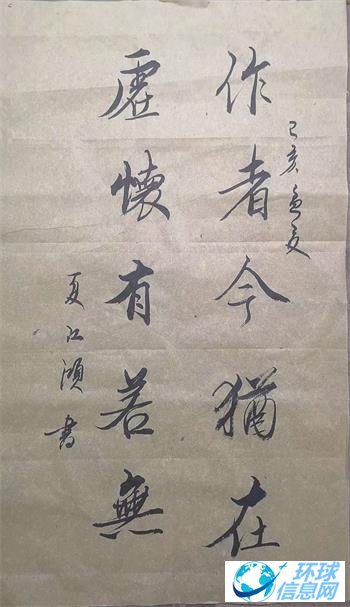 己亥孟夏
作者今猶在
虛懷有若無
夏江 書
环球
信息网